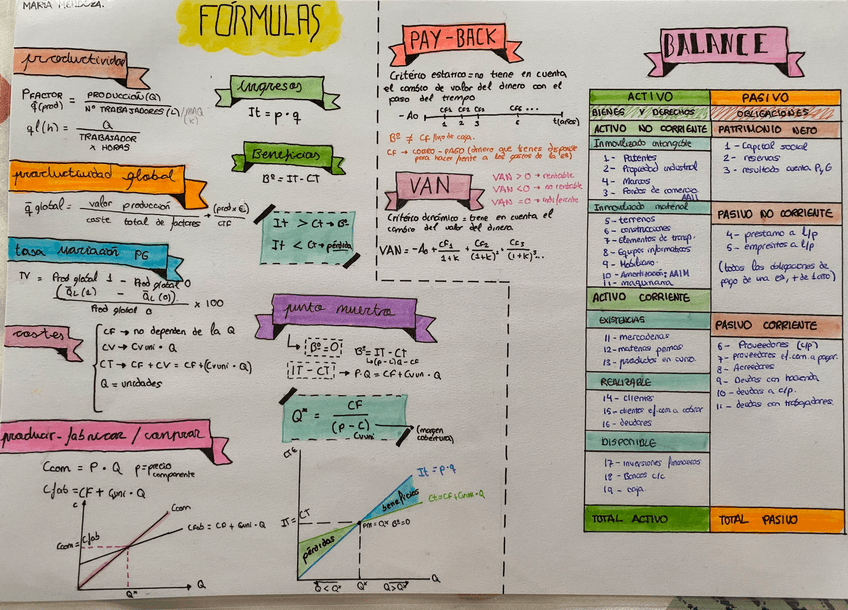 MARIA MENDOZA.
FÓRMULAS
productividad
PFACTOR = PRODUCCIÓN (Q)
q̂(prod) Nº TRABAJADORES (L) / MAQ (K)
ql(h) = Q
TRABAJADOR
x HORAS
productividad global
q̂ global = valor producción → (prod x €)
coste total de factores CTF
tasa variación PG
TV = Prod global 1 - Prod global 0
(Q̄L(1) - Q̄L(0)) x 100
Prod global 0
costes
CF → no dependen de la Q
CV → CVuni · Q
CT → CF + CV = CF + (CVuni · Q)
Q = unidades
producir-fabricar / comprar
Ccom = P · Q p = precio
componente
Cfab = CF + Cuni · Q
C
Ccom
Ccom = Cfab
Cfab = CF + Cuni · Q
Q*
Q
Ingresos
It = p · q
Beneficios
Bº = IT - CT
It > Ct → Bº
It < Ct → pérdida
punto muerto
Bº = 0
Bº = IT - CT
(p · Q) - CF
IT - CT → P · Q = CF + CVun · Q
Q* = CF
(p - C)
Cvuni
(margen
cobertura)
It = p · q
Ct = CF + Cvuni · Q
beneficios
IT = CT
PM = Q* Bº = 0
pérdidas
Q < Q* Q* Q > Q*
Q
PAY-BACK
Critério estático = no tiene en cuenta
el cambio de valor del dinero con el
paso del tiempo
CF1 CF2 CF3 CF6 ...
- A0
1 2 3 t(años)
Bº ≠ CF flujo de caja.
CF → COBRO - PAGO (dinero que tienes disponible
para hacer frente a los gastos de la es)
VAN
VAN > 0 → rentable
VAN < 0 → no rentable
VAN = 0 → indiferente
Critério dinámico = tiene en cuenta el
cambio del valor del dinero
VAN = - A0 + CF1 + CF2 + CF3 ...
1+k (1+k)² (1+k)³
BALANCE
ACTIVO PASIVO
BIENES Y DERECHOS OBLIGACIONES
ACTIVO NO CORRIENTE PATRIMONIO NETO
Inmovilizado intangible
1 - Patentes
2 - Propiedad industrial
4 - Marcas
3 - Fondos de comercio
AAII
1 - Capital social
2 - reservas
3 - resultado cuenta PyG
Inmovilizado material
5 - terrenos
6 - construcciones
7 - Elementos de transp.
8 - Equipos informáticos
9 - Mobiliario
10 - Amortización: AAIM
11 - maquinaria
PASIVO NO CORRIENTE
4 - prestamo a L/p
5 - empréstitos a L/p
(todas las obligaciones de
pago de una es, + de 1 año)
ACTIVO CORRIENTE
EXISTENCIAS
11 - mercaderías
12 - materias primas
13 - productos en curso.
PASIVO CORRIENTE
6 - Proveedores (c/p)
7 - proveedores ef.com. a pagar.
8 - Acreedores
9 - Deudas con hacienda
10 - deudas a c/p.
11 - deudas con trabajadores.
REALIZABLE
14 - clientes
15 - clientes ef.com a cobrar
16 - deudores
DISPONIBLE
17 - Inversiones financieras
18 - Bancos c/c
19 - caja.
TOTAL ACTIVO TOTAL PASIVO